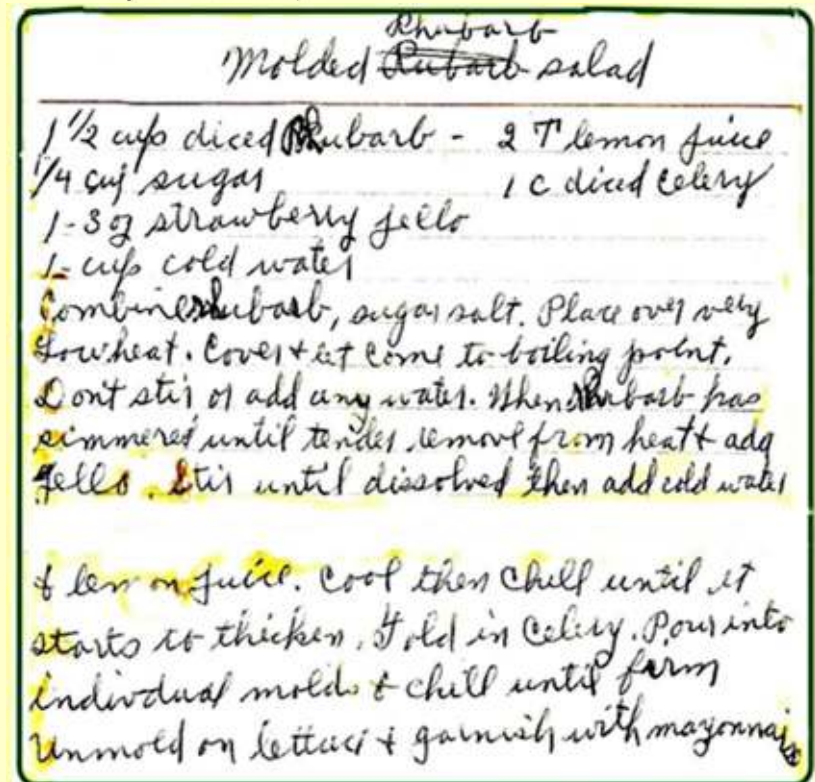 Rhubarb
Molded Rubarb salad
1 1/2 cup diced Rhubarb - 2 T lemon juice
1/4 cup sugar 1 c diced celery
1-3 oz strawberry jello
1- cup cold water
Combine rhubarb, sugar salt. Place over very
Low heat. Cover & let come to boiling point.
Don't stir or add any water. When Rhubarb has
simmered until tender remove from heat & add
Jello. Stir until dissolved then add cold water
& lemon juice. Cool then chill until it
starts to thicken. Fold in celery. Pour into
individual molds & chill until firm
Unmold on lettuce & garnish with mayonnaise